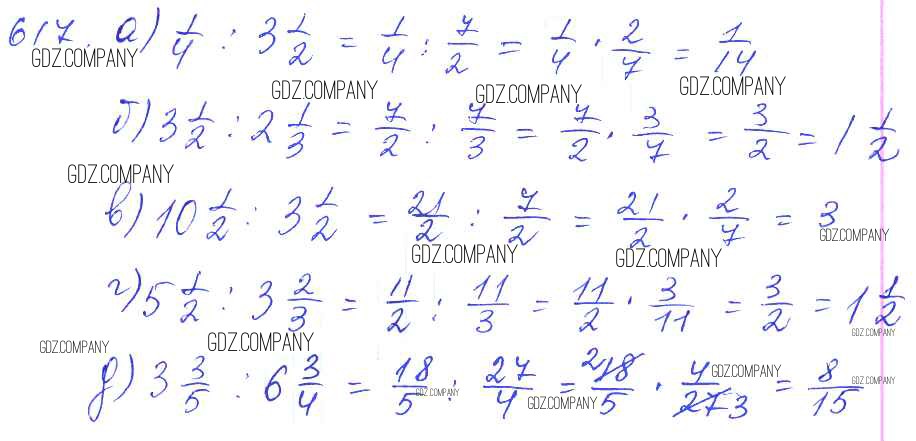 617. а) 1/4 : 3 1/2 = 1/4 : 7/2 = 1/4 · 2/7 = 1/14
GDZ.COMPANY GDZ.COMPANY GDZ.COMPANY GDZ.COMPANY
б) 3 1/2 : 2 1/3 = 7/2 : 7/3 = 7/2 · 3/7 = 3/2 = 1 1/2
GDZ.COMPANY
в) 10 1/2 : 3 1/2 = 21/2 : 7/2 = 21/2 · 2/7 = 3
GDZ.COMPANY GDZ.COMPANY GDZ.COMPANY
г) 5 1/2 : 3 2/3 = 11/2 : 11/3 = 11/2 · 3/11 = 3/2 = 1 1/2
GDZ.COMPANY GDZ.COMPANY GDZ.COMPANY
д) 3 3/5 : 6 3/4 = 18/5 : 27/4 = 2 18/5 · 4/27 3 = 8/15
GDZ.COMPANY GDZ.COMPANY GDZ.COMPANY GDZ.COMPANY